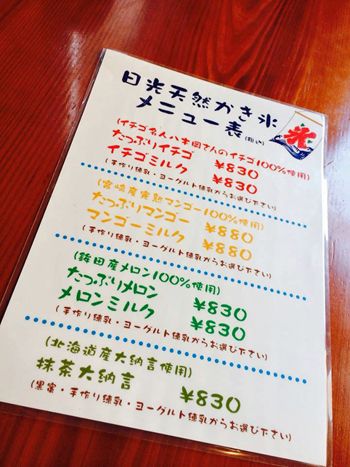 日光天然かき氷
メニュー表(税込)
氷
(イチゴ名人八木岡さんのイチゴ100%使用)
たっぷりイチゴ ¥830
イチゴミルク ¥830
(手作り練乳・ヨーグルト練乳からお選び下さい)
(宮崎産完熟マンゴー100%使用)
たっぷりマンゴー ¥880
マンゴーミルク ¥880
(手作り練乳・ヨーグルト練乳からお選び下さい)
(鉾田産メロン100%使用)
たっぷりメロン ¥830
メロンミルク ¥830
(手作り練乳・ヨーグルト練乳からお選び下さい)
(北海道産大納言使用)
抹茶大納言 ¥830
(黒蜜・手作り練乳・ヨーグルト練乳からお選び下さい)